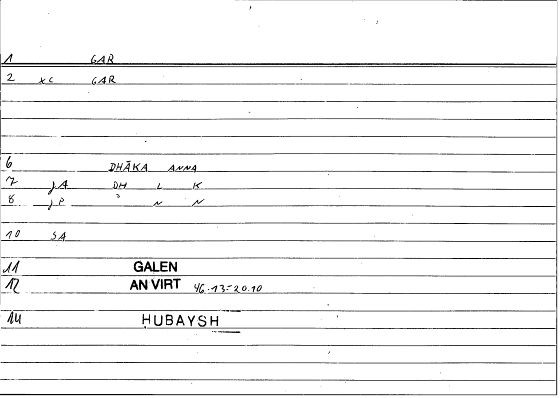 1 GAR
2 xc GAR
6 DHĀKA ANNA
7 JA DH L K
8 JP N N
10 SA
11 GALEN
12 AN VIRT 46.13-20.10
14 HUBAYSH